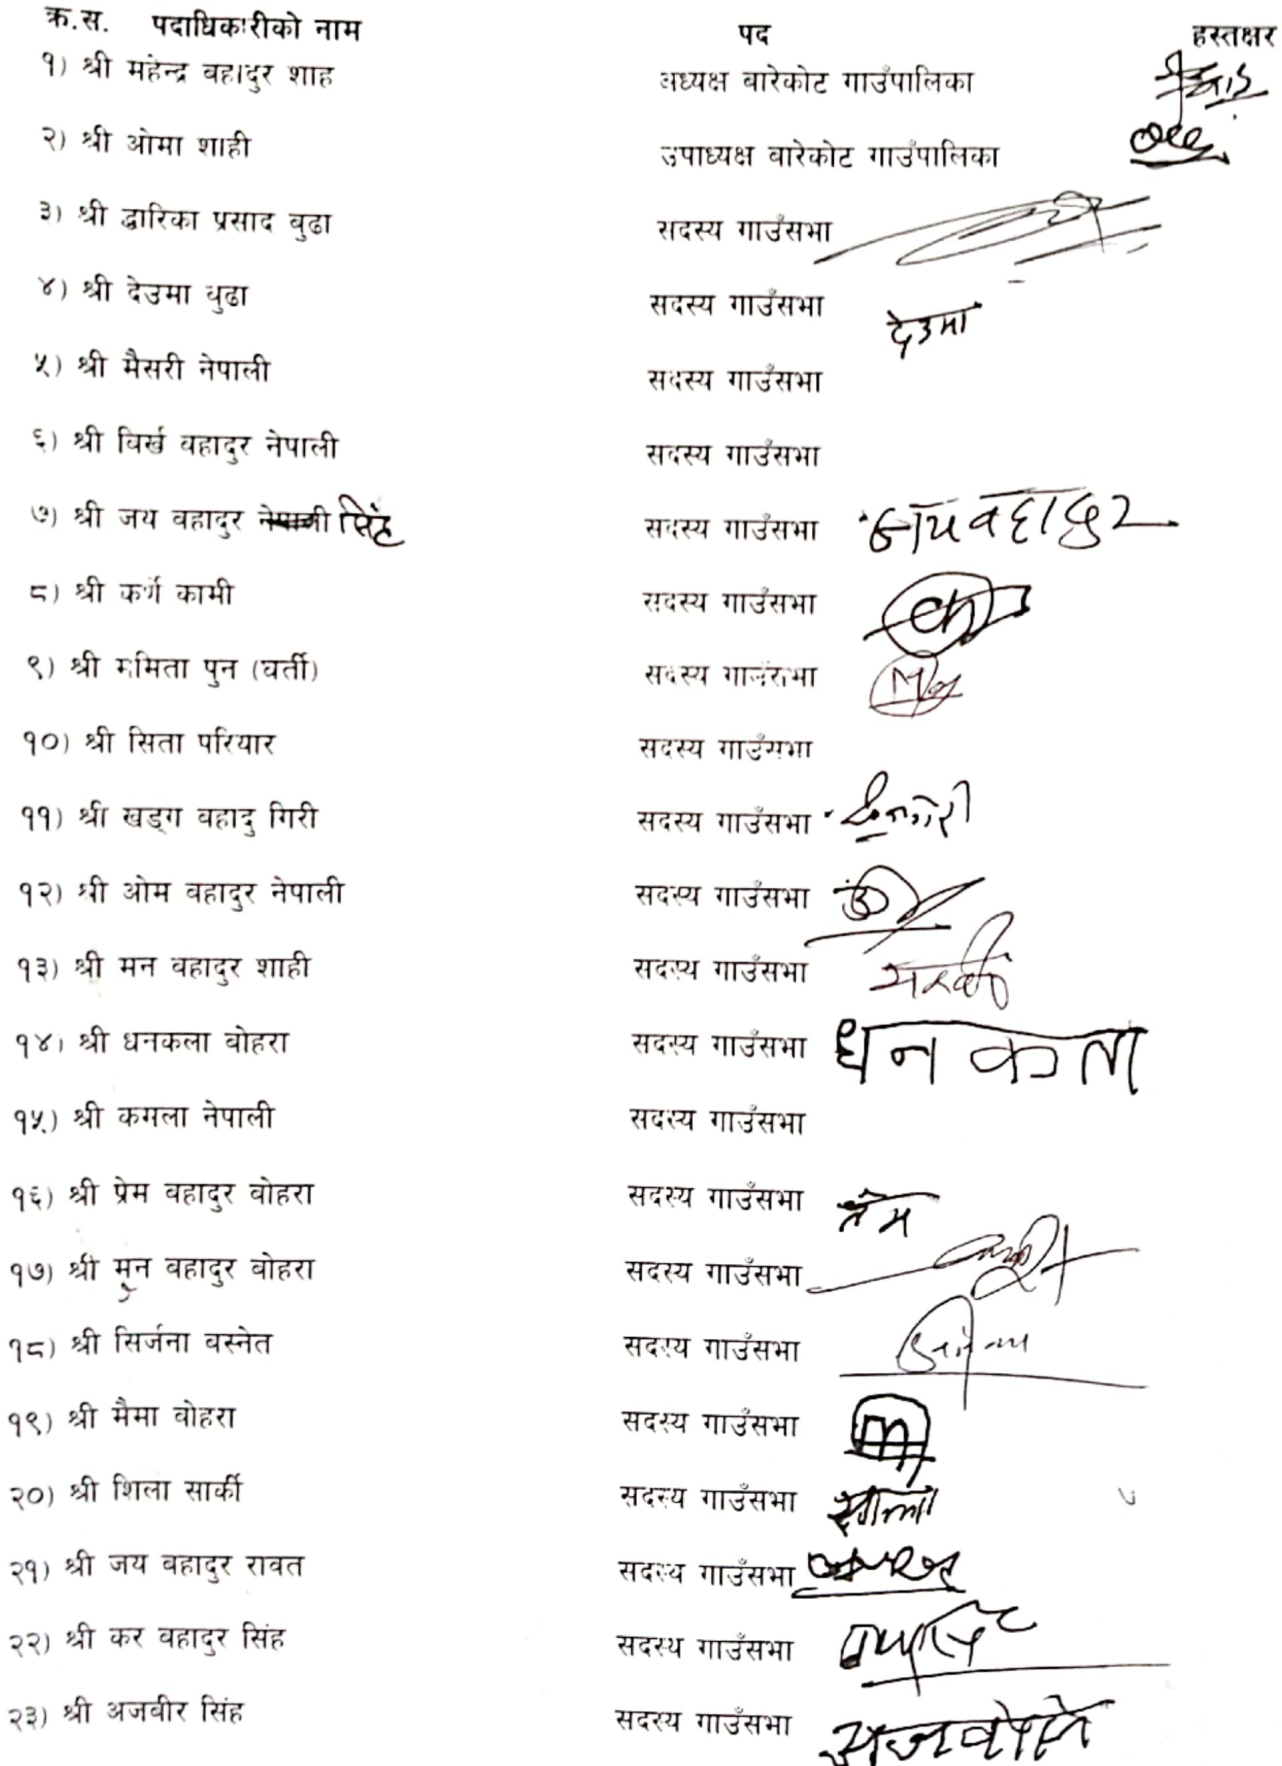 क्र.स. पदाधिकारीको नाम पद हस्तक्षर
१) श्री महेन्द्र बहादुर शाह अध्यक्ष बारेकोट गाउँपालिका
२) श्री ओमा शाही उपाध्यक्ष बारेकोट गाउँपालिका
३) श्री द्धारिका प्रसाद बुढा सदस्य गाउँसभा
४) श्री देउमा बुढा सदस्य गाउँसभा देउमा
५) श्री मैसरी नेपाली सदस्य गाउँसभा
६) श्री बिर्ख बहादुर नेपाली सदस्य गाउँसभा
७) श्री जय बहादुर नेपाली सिंह सदस्य गाउँसभा जयवहादुर
८) श्री कर्ण कामी सदस्य गाउँसभा
९) श्री ममिता पुन (घर्ती) सदस्य गाउँसभा
१०) श्री सिता परियार सदस्य गाउँसभा
११) श्री खड्ग बहादु गिरी सदस्य गाउँसभा
१२) श्री ओम बहादुर नेपाली सदस्य गाउँसभा
१३) श्री मन बहादुर शाही सदस्य गाउँसभा
१४) श्री धनकला बोहरा सदस्य गाउँसभा धनकला
१५) श्री कमला नेपाली सदस्य गाउँसभा
१६) श्री प्रेम बहादुर बोहरा सदस्य गाउँसभा
१७) श्री मुन बहादुर बोहरा सदस्य गाउँसभा
१८) श्री सिर्जना बस्नेत सदस्य गाउँसभा
१९) श्री मैमा बोहरा सदस्य गाउँसभा
२०) श्री शिला सार्की सदस्य गाउँसभा
२१) श्री जय बहादुर रावत सदस्य गाउँसभा
२२) श्री कर बहादुर सिंह सदस्य गाउँसभा
२३) श्री अजबीर सिंह सदस्य गाउँसभा